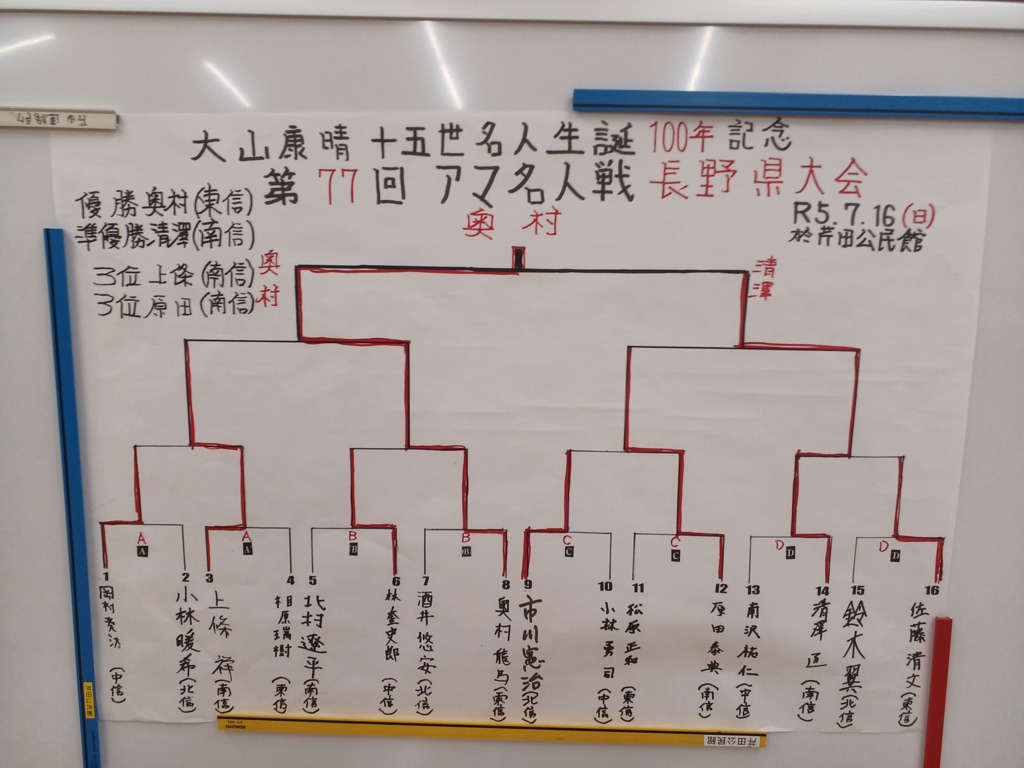 大山康晴 十五世名人生誕 100年 記念
第 77 回 アマ名人戦 長野県大会
優勝 奥村(東信)
準優勝 清澤(南信)
3位 上條(南信)
3位 原田(南信)
R5.7.16(日)
於芹田公民館
奥村
奥村
清澤
A A B B C C D D
A A B B C C D D
1 岡村 (中信)
2 小林暖希(北信)
3 上條 祥(南信)
4 相原瑞樹(東信)
5 北村遼平(南信)
6 林 奎史郎(中信)
7 酒井悠安(北信)
8 奥村龍馬(東信)
9 市川憲治(北信)
10 小林勇司(中信)
11 松原正和(東信)
12 原田泰典(南信)
13 南沢祐仁(中信)
14 清澤 (南信)
15 鈴木翼(北信)
16 佐藤清文(東信)
芹田公民館